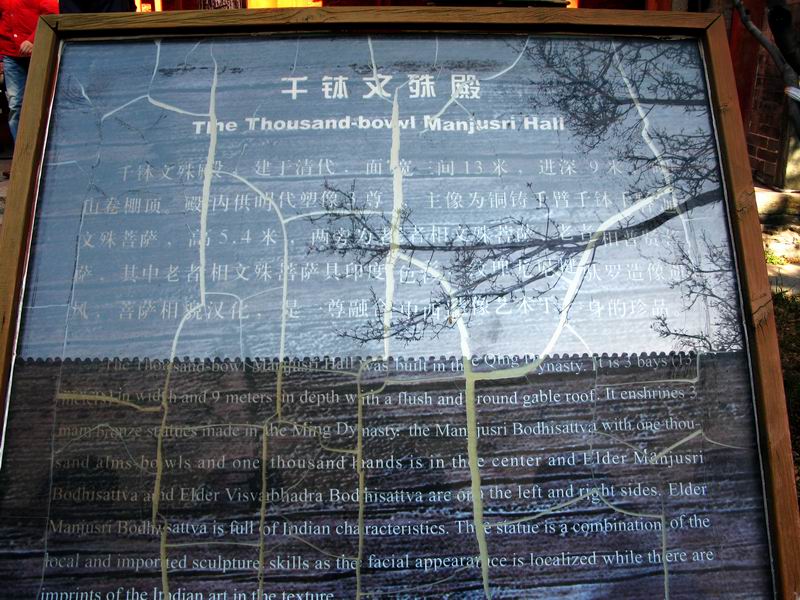 千钵文殊殿
The Thousand-bowl Manjusri Hall
千钵文殊殿，建于清代，面宽三间13米，进深9米，
山卷棚顶。殿内供明代塑像3尊，主像为铜铸千臂千钵
文殊菩萨，高5.4米，两旁为老者相文殊菩萨、老者相普贤菩
萨，其中老者相文殊菩萨具印度色彩，造像
风，菩萨相貌汉化，是一尊融合中西造像艺术于一身的珍品。
The Thousand-bowl Manjusri Hall was built in the Qing Dynasty. It is 3 bays (13
meters) in width and 9 meters in depth with a flush and round gable roof. It enshrines 3
main bronze statues made in the Ming Dynasty: the Manjusri Bodhisattva with one thou-
sand alms-bowls and one thousand hands is in the center and Elder Manjusri
Bodhisattva and Elder Visvabhadra Bodhisattva are on the left and right sides. Elder
Manjusri Bodhisattva is full of Indian characteristics. The statue is a combination of the
local and imported sculpture skills as the facial appearance is localized while there are
imprints of the Indian art in the texture.